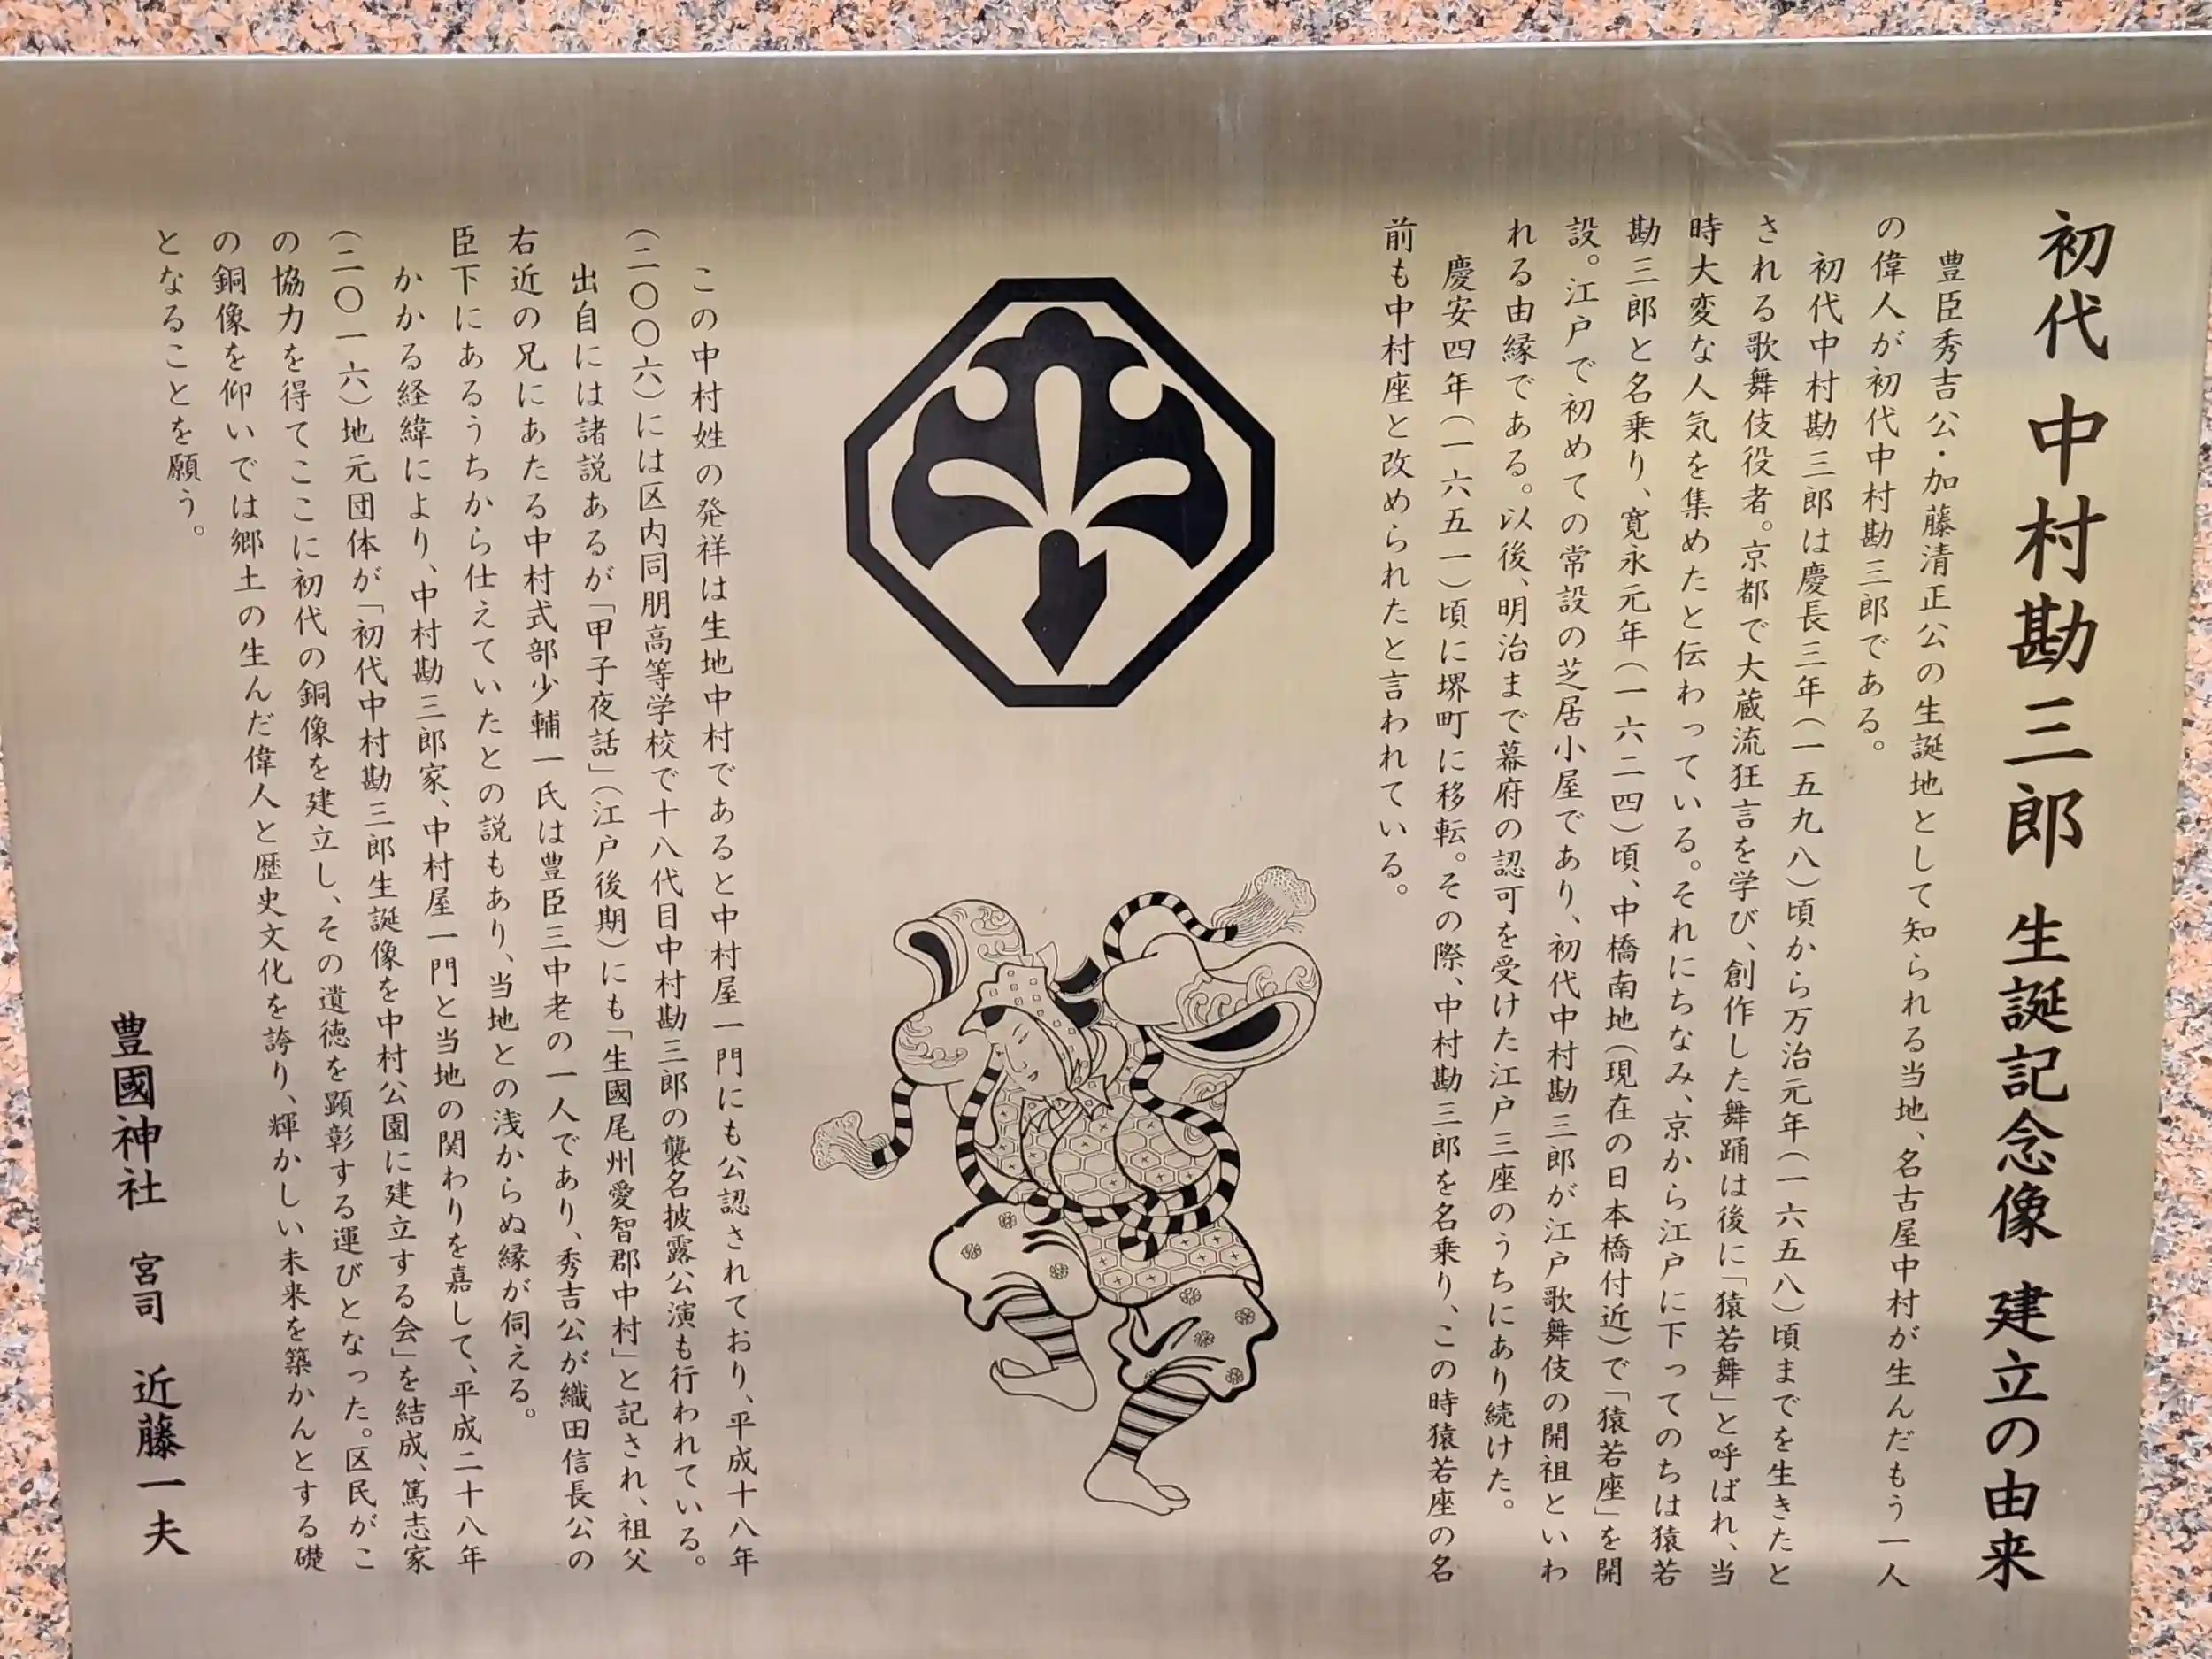 初代 中村勘三郎 生誕記念像 建立の由来
豊臣秀吉公・加藤清正公の生誕地として知られる当地、名古屋中村が生んだもう一人
の偉人が初代中村勘三郎である。
初代中村勘三郎は慶長三年（一五九八）頃から万治元年（一六五八）頃までを生きたと
される歌舞伎役者。京都で大蔵流狂言を学び、創作した舞踊は後に「猿若舞」と呼ばれ、当
時大変な人気を集めたと伝わっている。それにちなみ、京から江戸に下ってのちは猿若
勘三郎と名乗り、寛永元年（一六二四）頃、中橋南地（現在の日本橋付近）で「猿若座」を開
設。江戸で初めての常設の芝居小屋であり、初代中村勘三郎が江戸歌舞伎の開祖といわ
れる由縁である。以後、明治まで幕府の認可を受けた江戸三座のうちにあり続けた。
慶安四年（一六五一）頃に堺町に移転。その際、中村勘三郎を名乗り、この時猿若座の名
前も中村座と改められたと言われている。
この中村姓の発祥は生地中村であると中村屋一門にも公認されており、平成十八年
（二〇〇六）には区内同朋高等学校で十八代目中村勘三郎の襲名披露公演も行われている。
出自には諸説あるが「甲子夜話」（江戸後期）にも「生國尾州愛智郡中村」と記され、祖父
右近の兄にあたる中村式部少輔一氏は豊臣三中老の一人であり、秀吉公が織田信長公の
臣下にあるうちから仕えていたとの説もあり、当地との浅からぬ縁が伺える。
かかる経緯により、中村勘三郎家、中村屋一門と当地の関わりを嘉して、平成二十八年
（二〇一六）地元団体が「初代中村勘三郎生誕像を中村公園に建立する会」を結成、篤志家
の協力を得てここに初代の銅像を建立し、その遺徳を顕彰する運びとなった。区民がこ
の銅像を仰いでは郷土の生んだ偉人と歴史文化を誇り、輝かしい未来を築かんとする礎
となることを願う。
豊國神社 宮司 近藤一夫